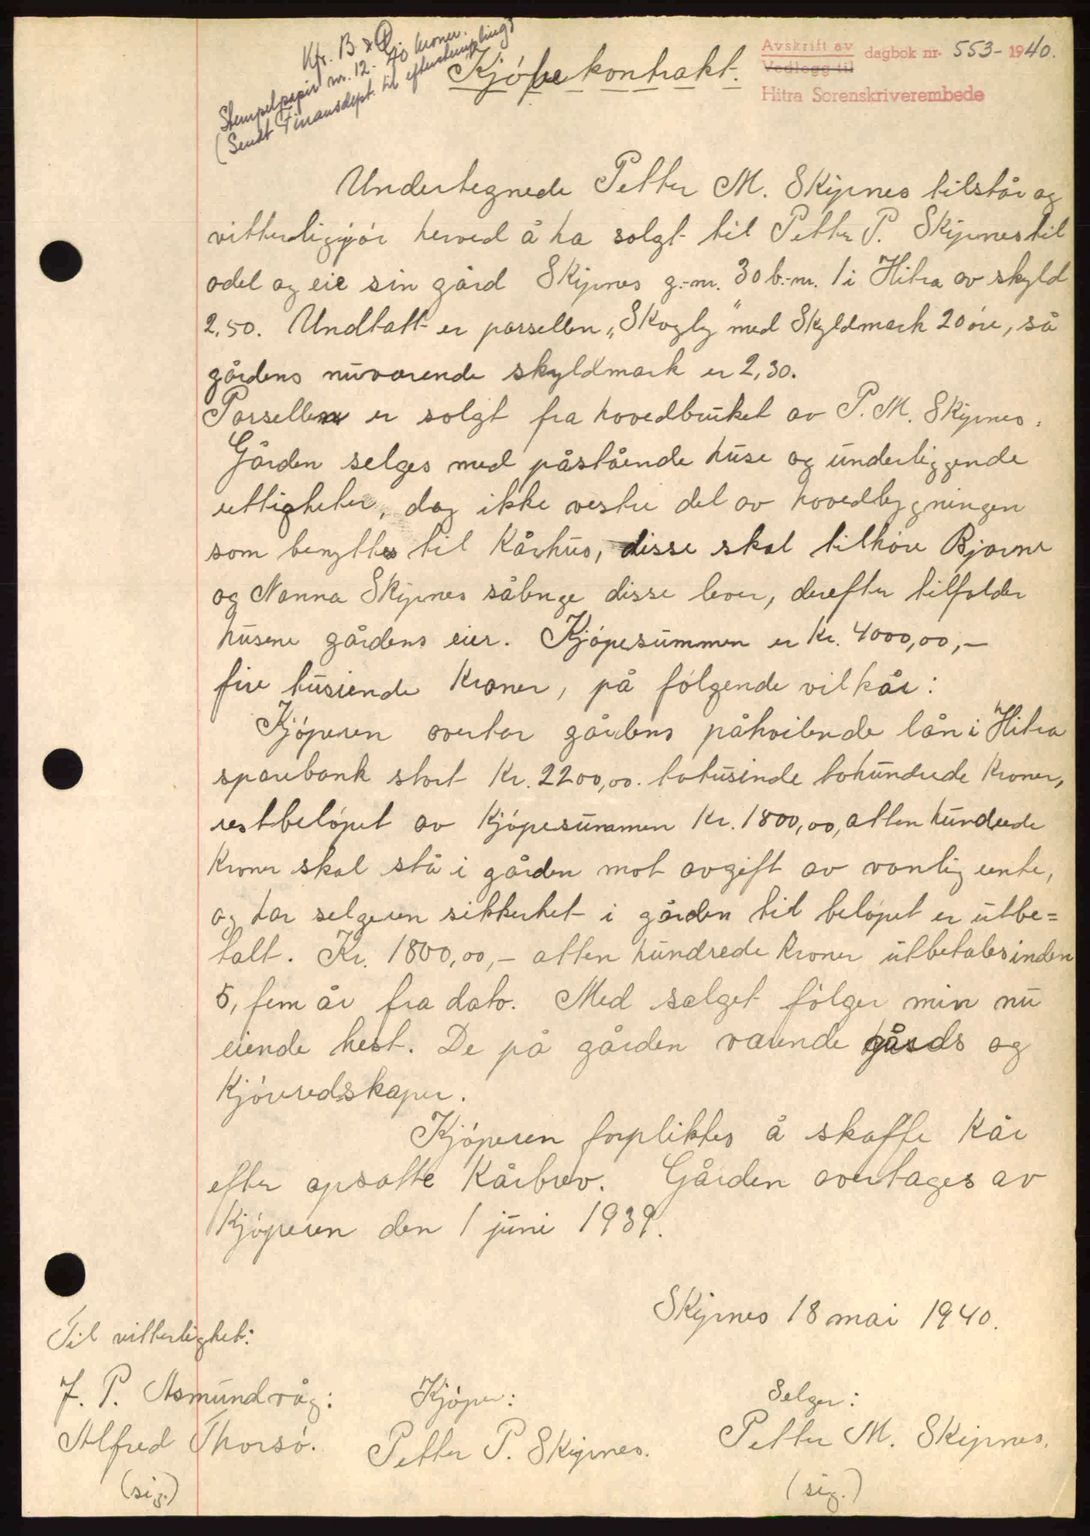 Kfr. B & D.
Stempelpapir nr. 12. 40 kroner.
(Sendt Finansdept. til efterstempling)
Kjøpekontrakt.
Avskrift av
Vedlegg til
dagbok nr. 553 - 1940.
Hitra Sorenskriverembede
Undertegnede Petter M. Skipnes tilstår og
vitterliggjør herved å ha solgt til Petter P. Skipnes til
odel og eie sin gård Skipnes g.-nr. 30 b.-nr. 1 i Hitra av skyld
2,50. Undtatt er parsellen „Skogly" med Skyldmark 20 øre, så
gårdens nuværende skyldmark er 2,30.
Parsellen er solgt fra hovedbruket av P. M. Skipnes.
Gården selges med påstående huse og underliggende
rettigheter, dog ikke vestre del av hovedbygningen
som benyttes til Kårhus, disse skal tilhøre Bjarne
og Nanna Skipnes sålenge disse lever, derefter tilfalder
husene gårdens eier. Kjøpesummen er kr. 4000,00,-
fire tusiende Kroner, på følgende vilkår:
Kjøperen overtar gårdens påhvilende lån i Hitra
sparebank stort Kr. 2200,00. totusinde tohundrede Kroner,
restbeløpet av Kjøpesummen Kr. 1800,00, atten hundrede
Kroner skal stå i gården mot avgift av vanlig rente,
og har selgeren sikkerhet i gården til beløpet er utbe=
talt. Kr. 1800,00,- atten hundrede Kroner utbetales inden
5, fem år fra dato. Med salget følger min nu
eiende hest. De på gården værende gårds og
Kjøreredskaper.
Kjøperen forpliktes å skaffe Kår
efter opsatte Kårbrev. Gården overtages av
Kjøperen den 1 juni 1939.
Skipnes 18 mai 1940.
Til vitterlighet:
J. P. Asmundvåg:
Alfred Thorsø.
(sig.)
Kjøper:
Petter P. Skipnes.
Selger:
Petter M. Skipnes.
(sig.)